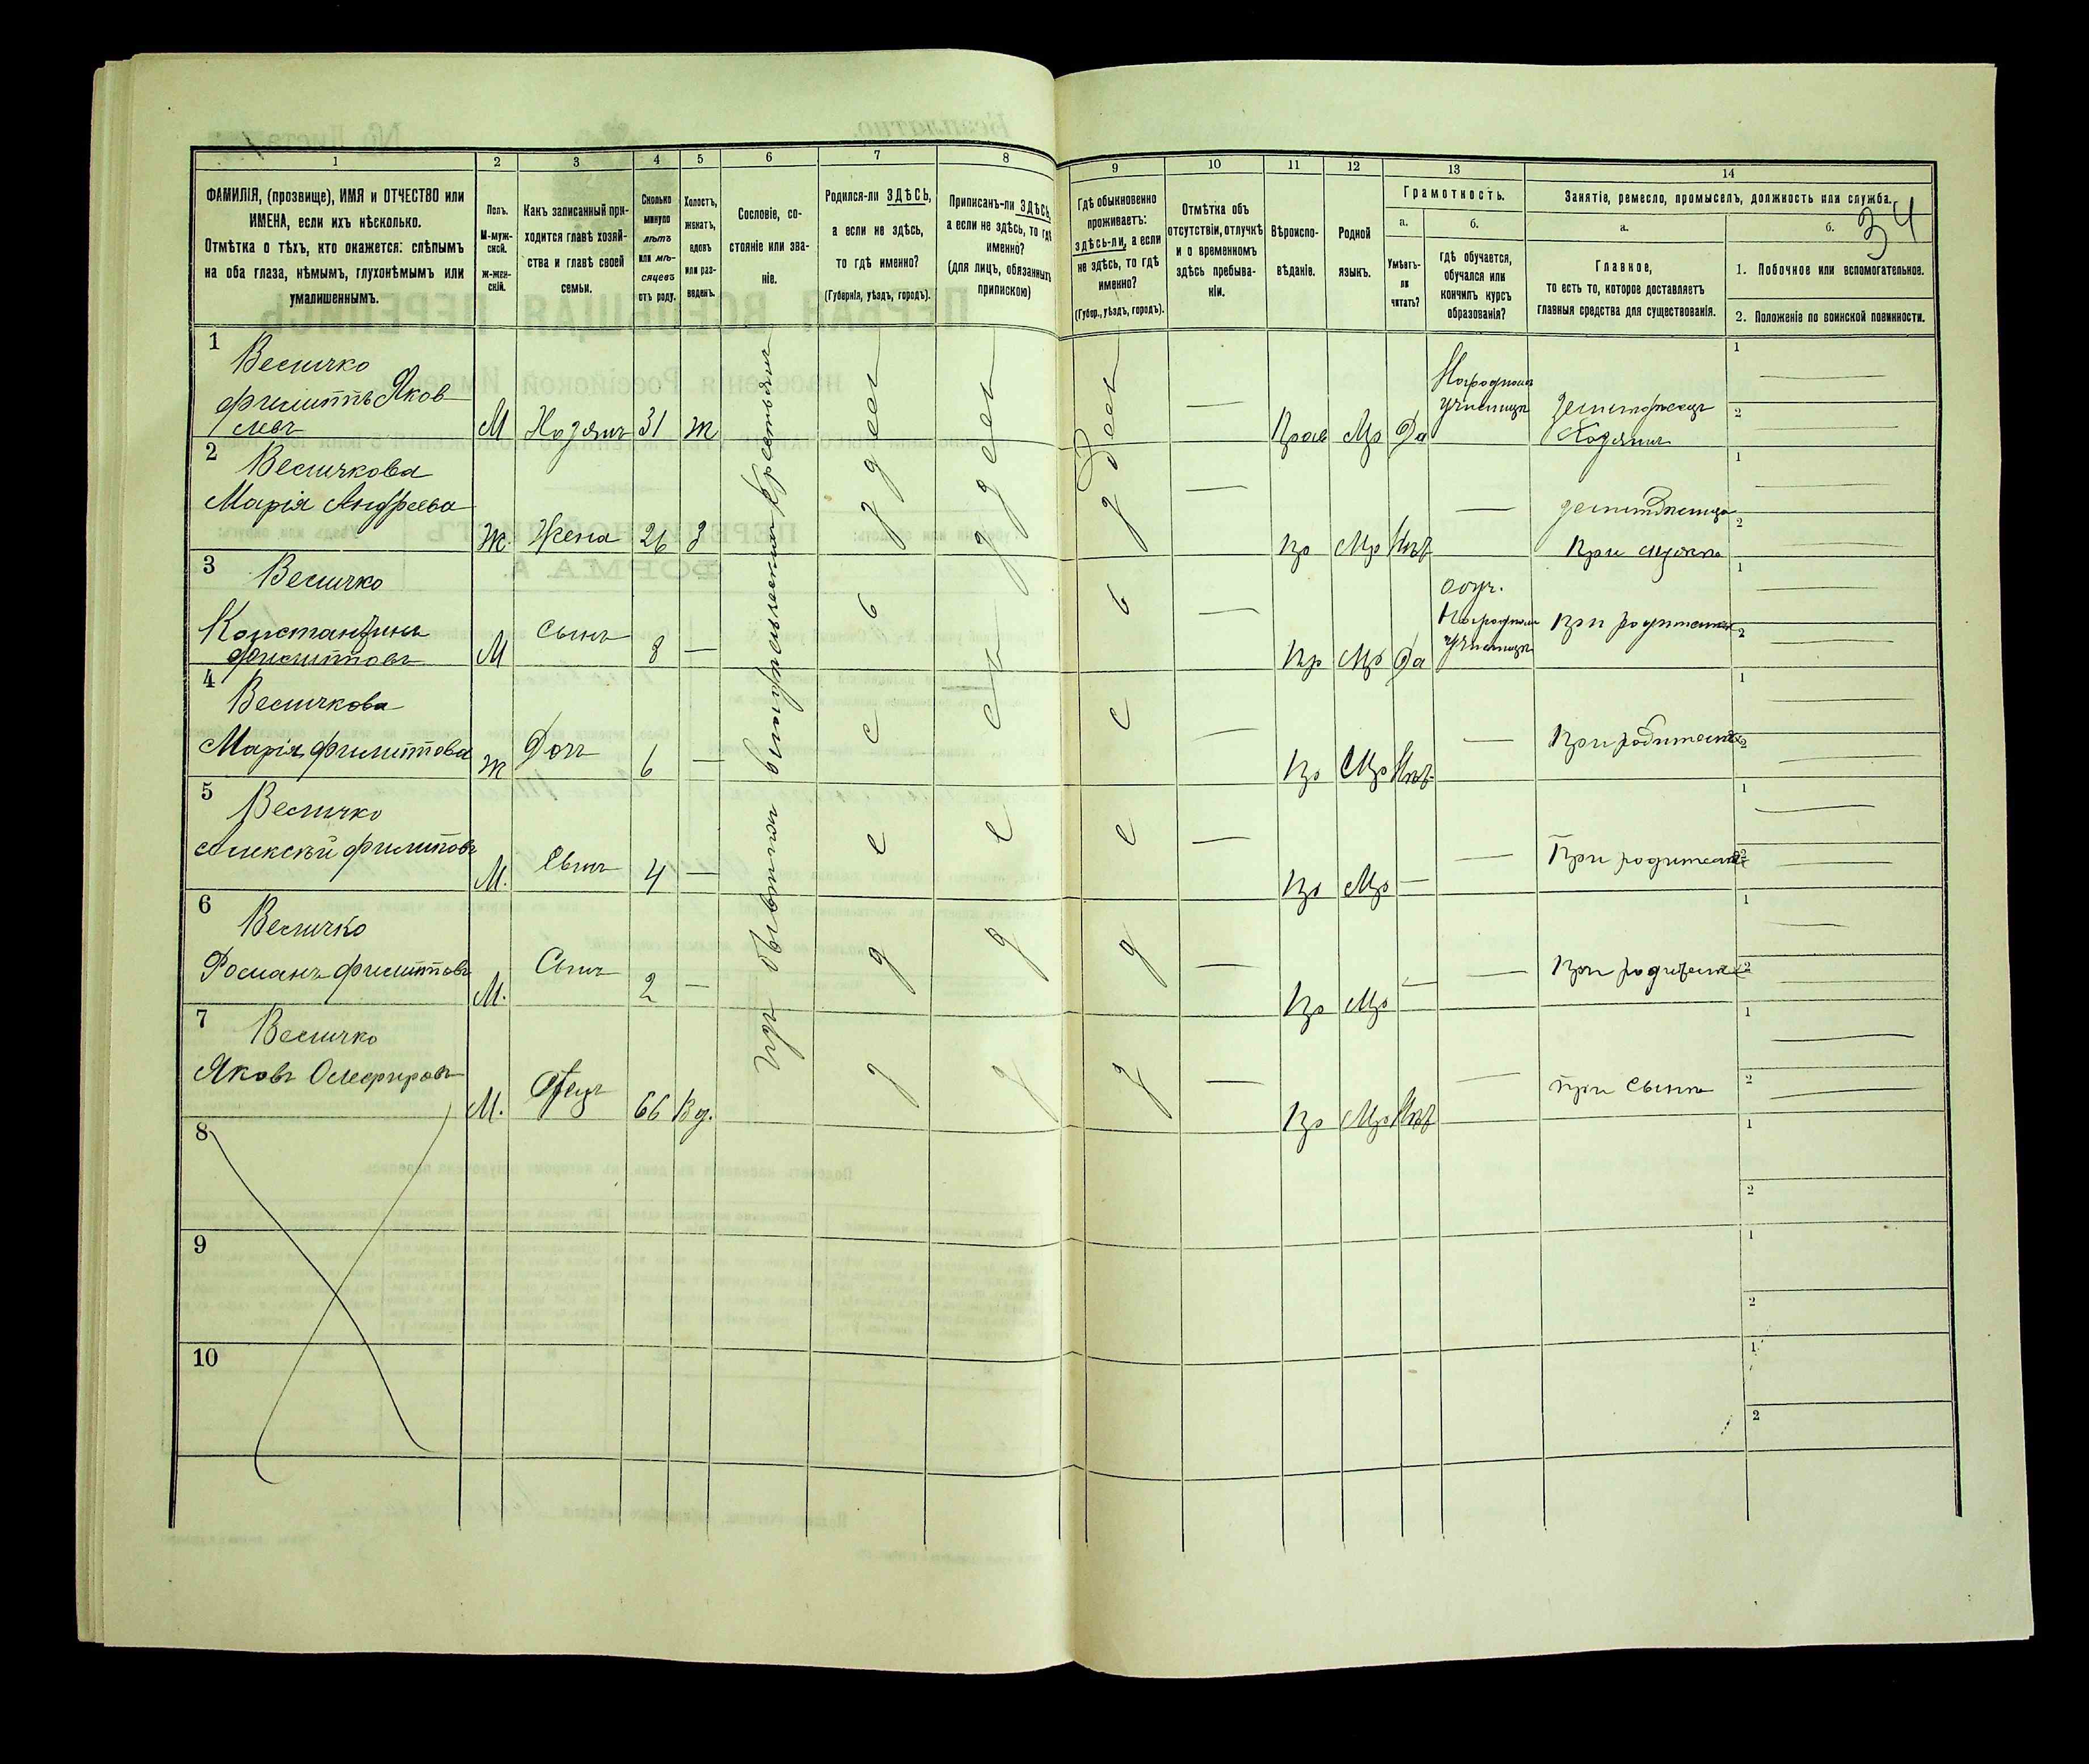 1 2 3 4 5 6 7 8 9 10 11 12 13 14
ФАМИЛІЯ, (прозвище), ИМЯ и ОТЧЕСТВО или
ИМЕНА, если ихъ нѣсколько.
Отмѣтка о тѣхъ, кто окажется: слѣпымъ
на оба глаза, нѣмымъ, глухонѣмымъ или
умалишеннымъ.
Полъ.
М-муж-
ской.
ж-жен-
скій.
Какъ записанный при-
ходится главѣ хозяй-
ства и главѣ своей
семьи.
Сколько
минуло
лѣтъ
или мѣ-
сяцевъ
отъ роду.
Холостъ,
женатъ,
вдовъ
или раз-
веденъ.
Сословіе, со-
стояніе или зва-
ніе.
Родился-ли ЗДѢСЬ,
а если не здѣсь,
то гдѣ именно?
(Губернія, уѣздъ, городъ).
Приписанъ-ли ЗДѢСЬ,
а если не здѣсь, то гдѣ
именно?
(для лицъ, обязанныхъ
припискою)
Гдѣ обыкновенно
проживаетъ:
здѣсь-ли, а если
не здѣсь, то гдѣ
именно?
(Губер., уѣздъ, городъ).
Отмѣтка объ
отсутствіи, отлучкѣ
и о временномъ
здѣсь пребыва-
ніи.
Вѣроиспо-
вѣданіе.
Родной
языкъ.
Грамотность.
а.
Умѣетъ-
ли
читать?
б.
гдѣ обучается,
обучался или
кончилъ курсъ
образованія?
Занятіе, ремесло, промыселъ, должность или служба.
34
а.
Главное,
то есть то, которое доставляетъ
главныя средства для существованія.
б.
1. Побочное или вспомогательное.
2. Положеніе по воинской повинности.
1 Величко
Филиппъ Яков
левъ М Хозяинъ 31 ж
Прав Мр Да
Народномъ
училищѣ
Хозяинъ
2 Величкова
Марія Андреева
Ж. Жена 26 З
Пр Мр Нѣтъ
При мужѣ
3 Величко
Константинъ
Филипповъ М Сынъ 8 —
Пр Мр Да
Обуч.
Народномъ
училищѣ
При родителяхъ
4 Величкова
Марія Филиппова Ж Дочь 6 —
Пр Мр Нѣтъ — При родителяхъ
5 Величко
Алексѣй Филиповъ М. Сынъ 4 —
Пр Мр — — При родителяхъ
6 Величко
Романъ Филипповъ М. Сынъ 2 —
Пр Мр — — При родителяхъ
7 Величко
Яковъ М. Отецъ 66 Вд.
Пр Мр Нѣтъ — При сынѣ
Изъ бывшихъ крестьянъ
8
9
10